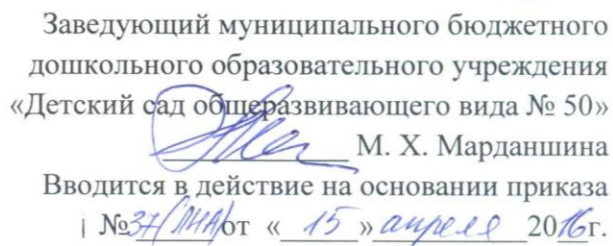 Заведующий муниципального бюджетного
дошкольного образовательного учреждения
«Детский сад общеразвивающего вида № 50»
М. Х. Марданшина
Вводится в действие на основании приказа
№37/ЛНА/от «15» апреля 2016г.